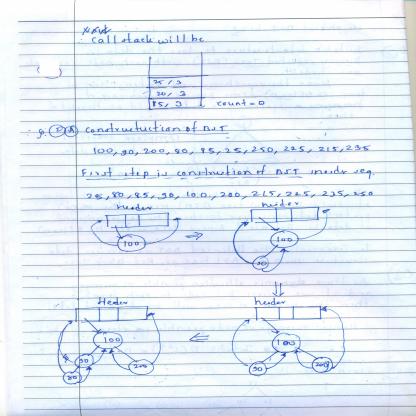 call stack will be
25/3
20/3
85/3 count=0
construtuction of BST
100,90,200,80,85,25,250,225,215,235
First step is construction of BST inorder seq.
25,80,85,90,100,200,215,225,235,250
header
100
header
100
90
Header
100
90
200
80
header
100
90
200